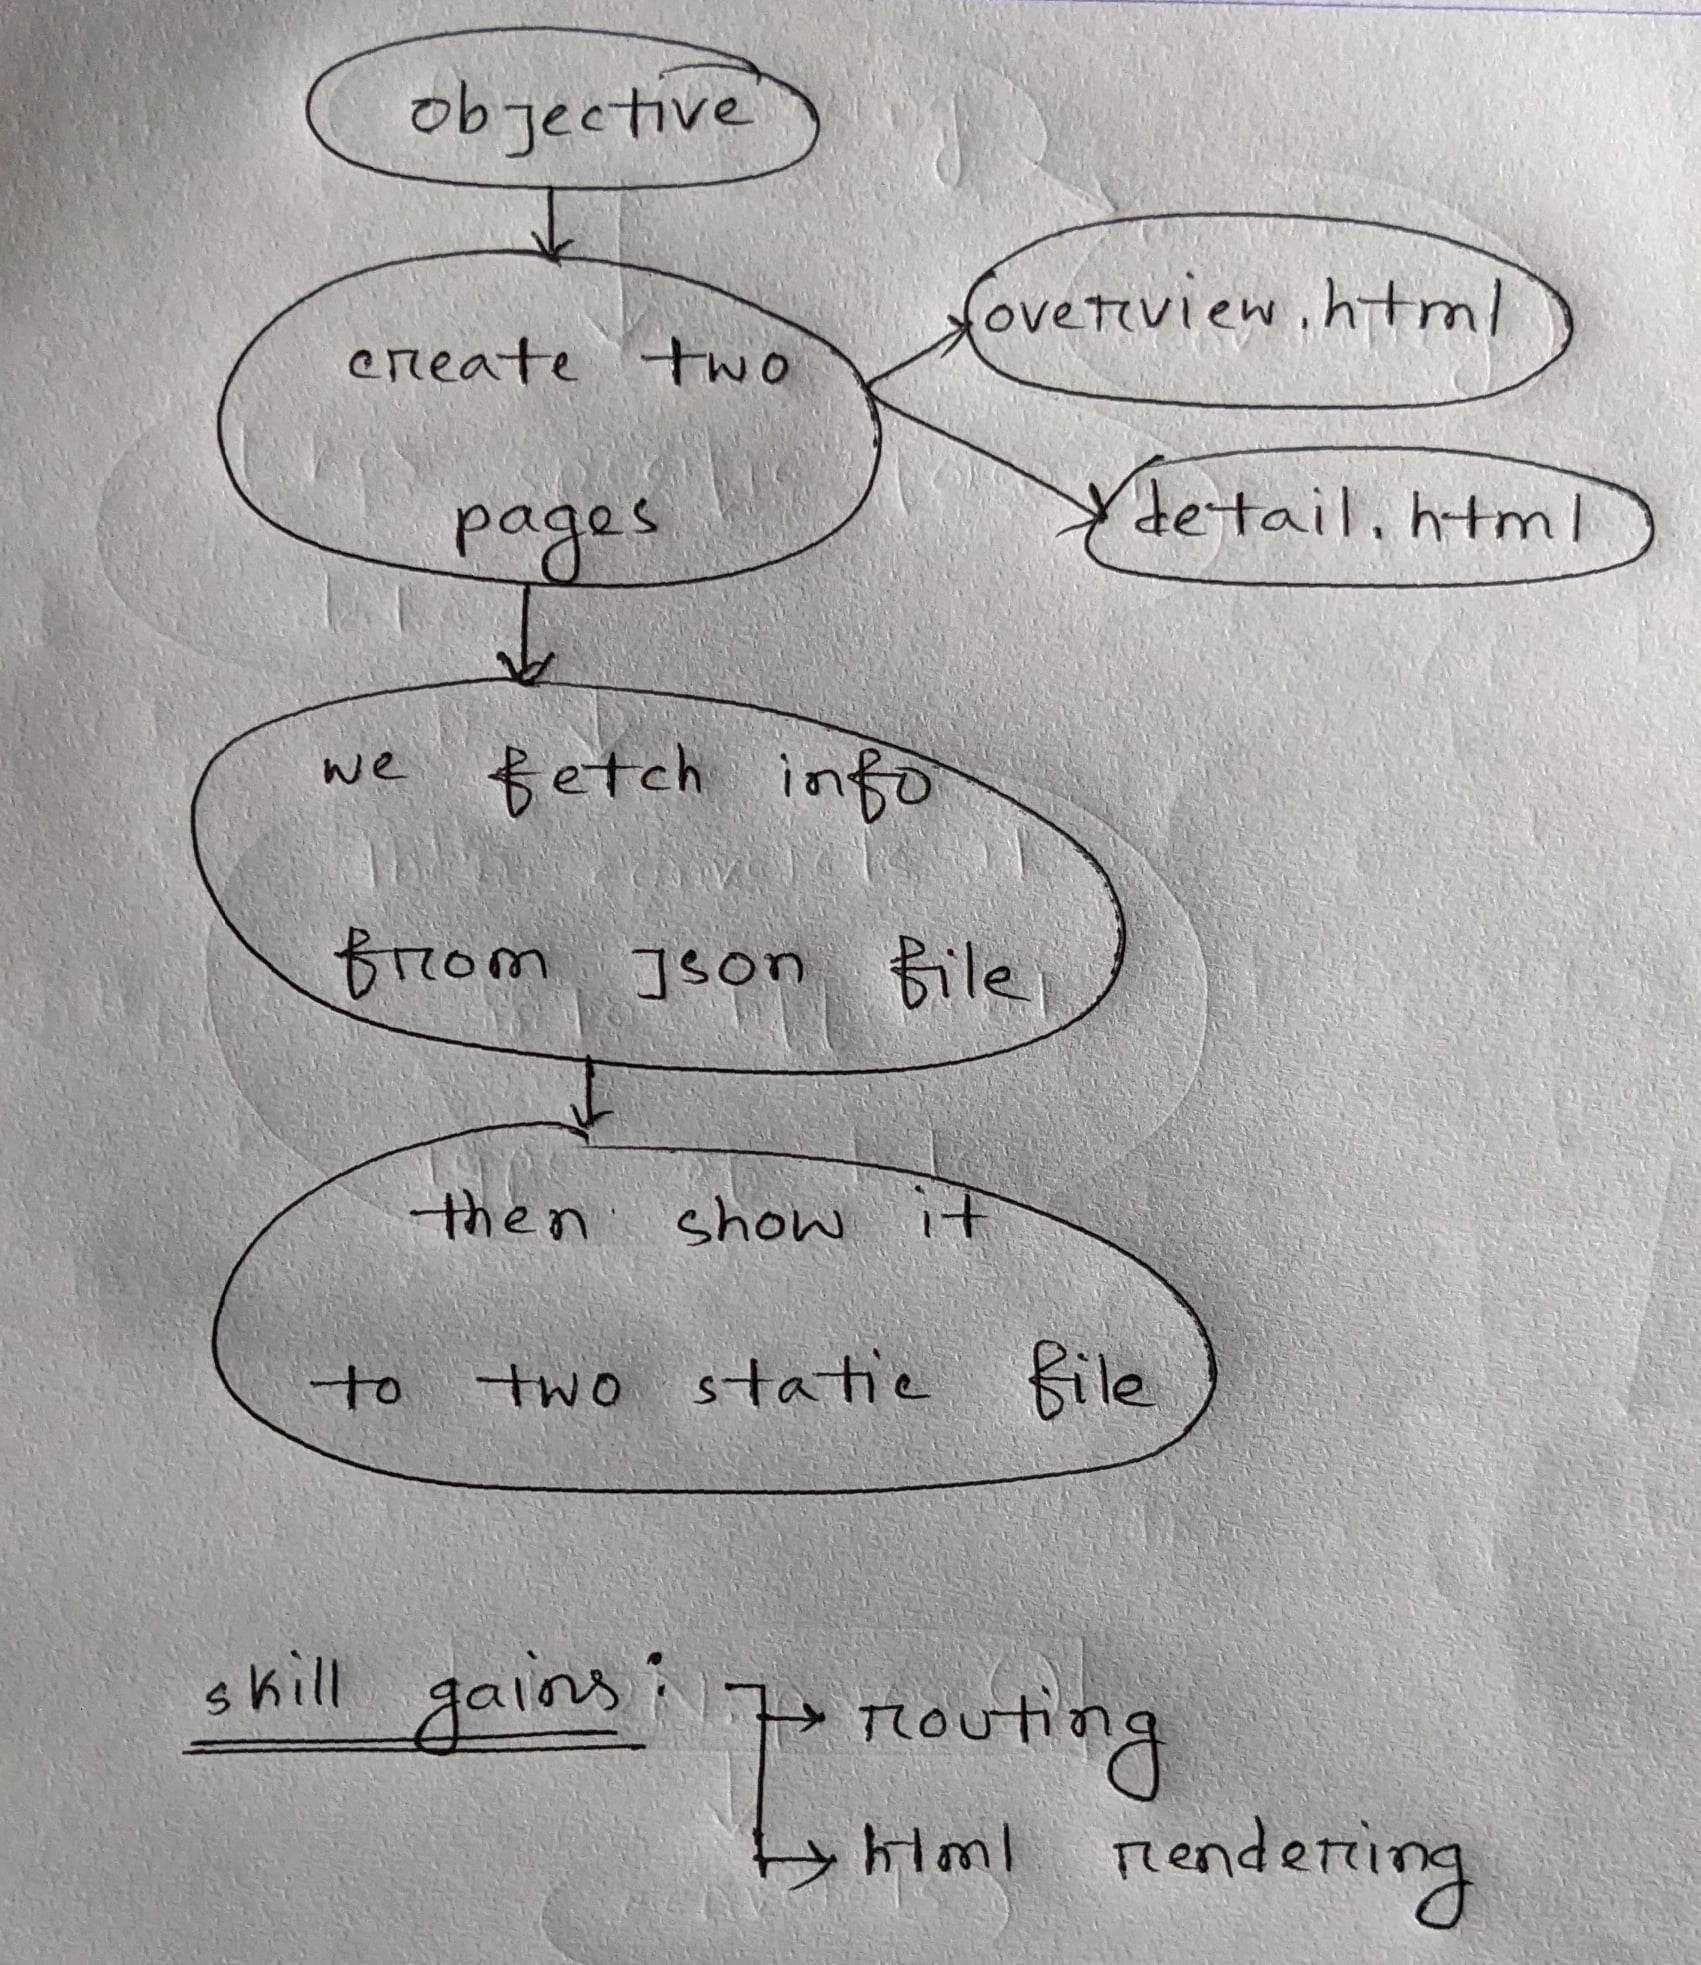 objective
create two
pages
overview.html
detail.html
we fetch info
from json file
then show it
to two static file
skill gains:
routing
html rendering